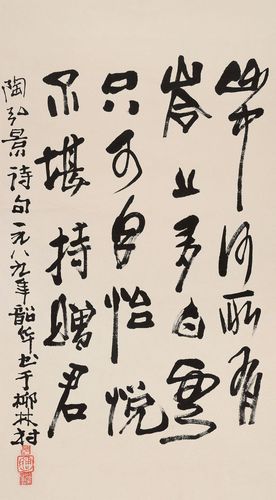 山中何所有
岺上多白雲
只可自怡悅
不堪持贈君
陶弘景詩句一九八九年韶书于柳林村